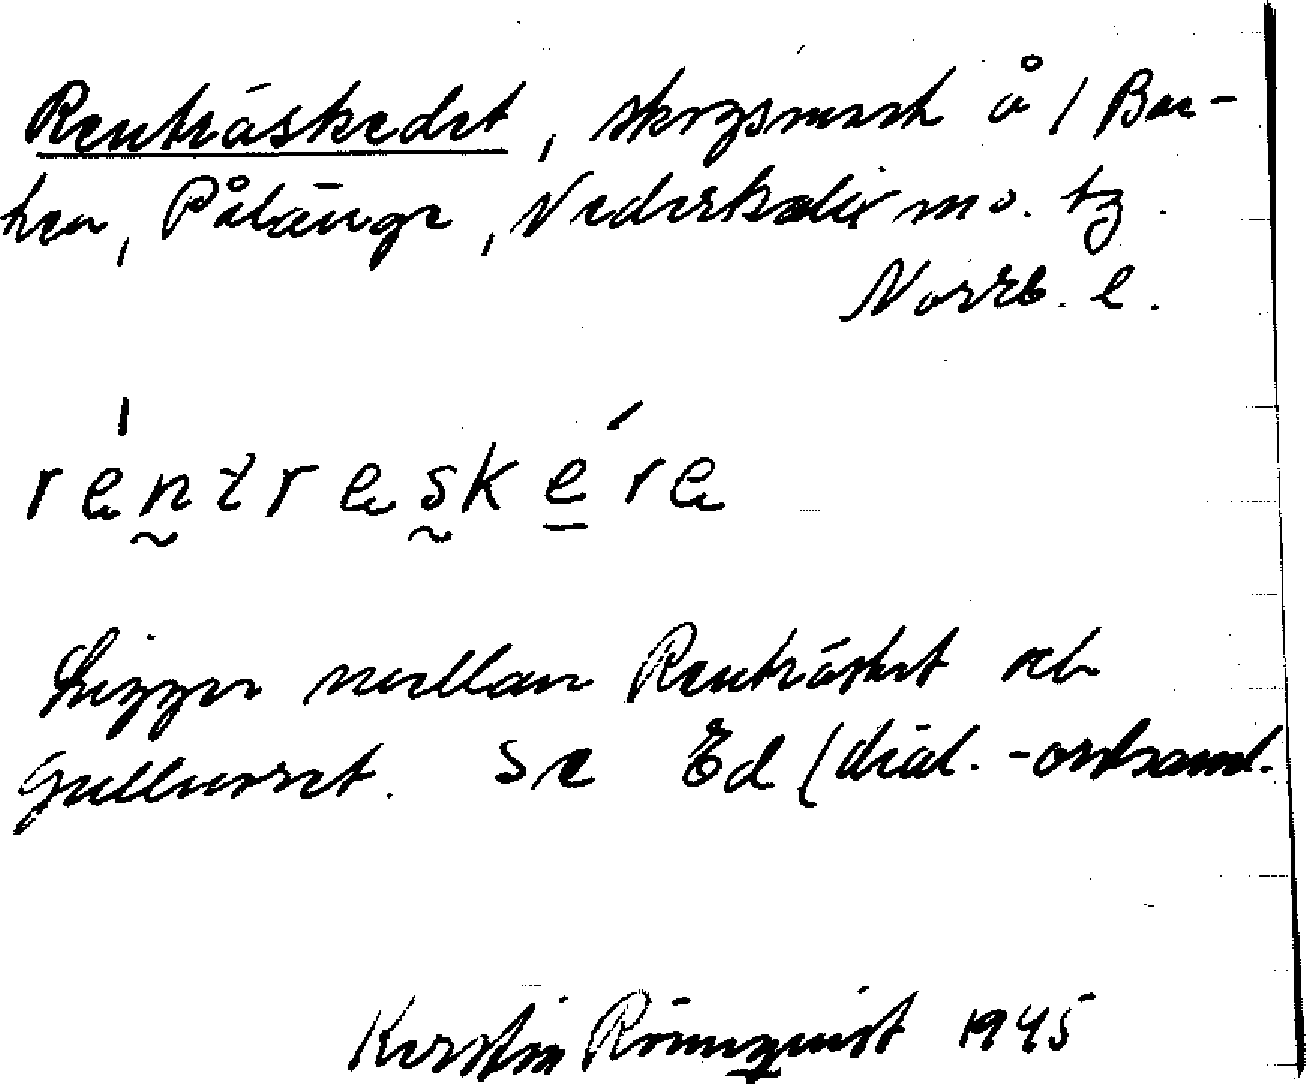 Renträskedet, skogsmark å / Bac-
ken, Pålänge, Nederkalix sn o. tg
Norrb. l.
réntreskére
Ligger mellan Renträsket och
Gullberget. Se Ed (dial.-ordsaml.
Kerstin Rönnquist 1945